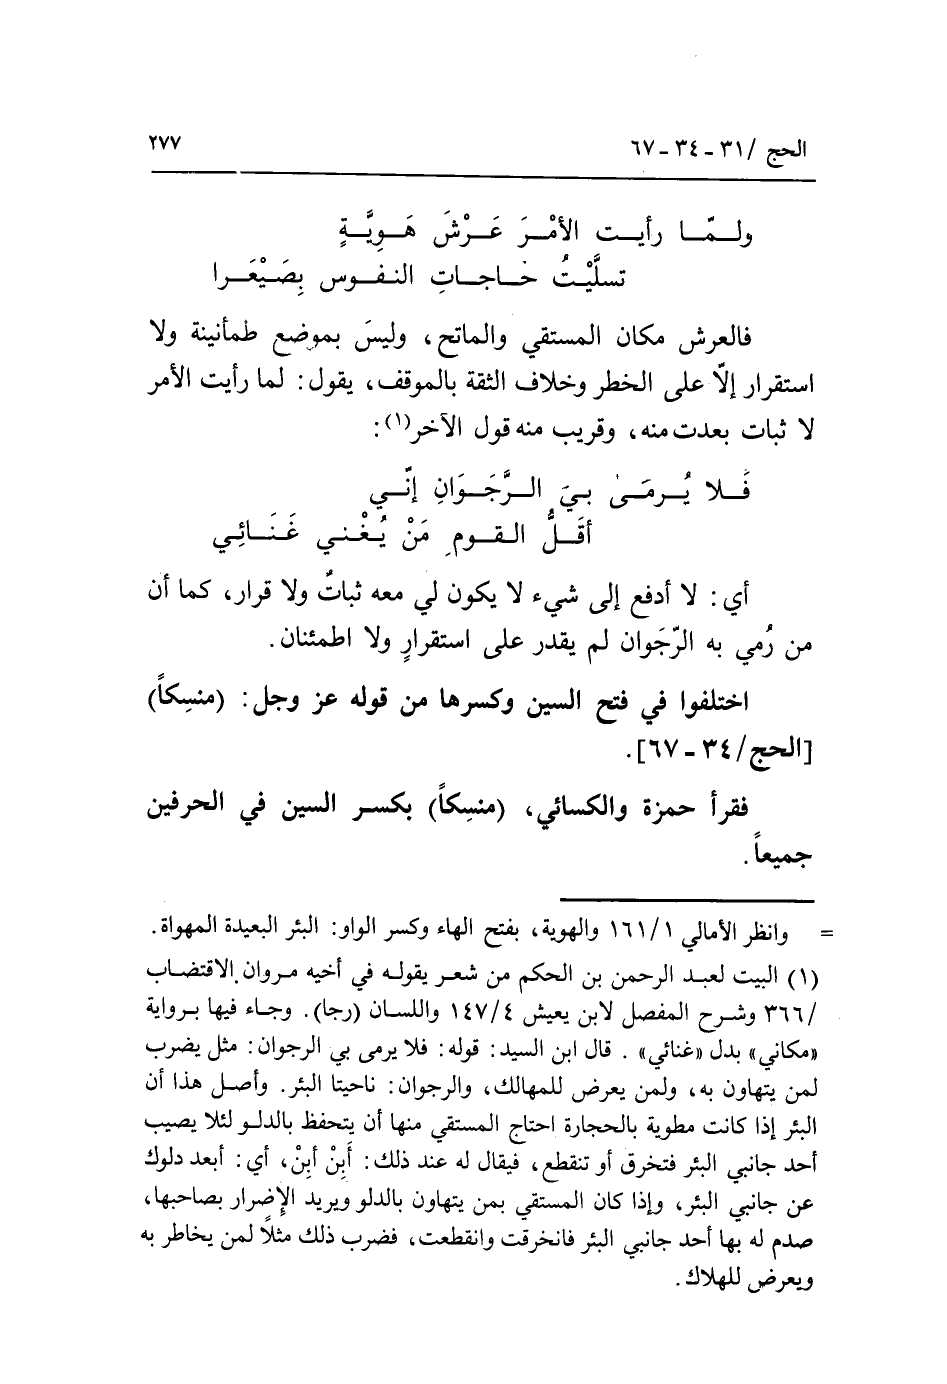 الحج / ٣١ ـ ٣٤ ـ ٦٧
٢٧٧
ولـمّـا رأيـت الأمْـرَ عَـرْشَ هَـوِيَّـةٍ
تسلَّيْتُ حـاجـاتِ النـفـوس بِصَيْعَـرا
فالعرش مكان المستقي والماتح، وليسَ بموضع طمأنينة ولا
استقرار إلّا على الخطر وخلاف الثقة بالموقف، يقول: لما رأيت الأمر
لا ثبات بعدت منه، وقريب منه قول الآخر(١):
فَـلا يُـرمَـىٰ بـيَ الـرَّجَـوَانِ إنّـي
أقَـلُّ القـومِ مَنْ يُغْنـي غَنَـائِي
أي: لا أدفع إلى شيء لا يكون لي معه ثباتٌ ولا قرار، كما أن
من رُمي به الرّجَوان لم يقدر على استقرارٍ ولا اطمئنان.
اختلفوا في فتح السين وكسرها من قوله عز وجل: (منسِكاً)
[الحج/ ٣٤ ـ ٦٧].
فقرأ حمزة والكسائي، (منسِكاً) بكسر السين في الحرفين
جميعاً.
= وانظر الأمالي ١/ ١٦١ والهوية، بفتح الهاء وكسر الواو: البئر البعيدة المهواة.
(١) البيت لعبد الرحمن بن الحكم من شعر يقوله في أخيه مروان. الاقتضاب
/٣٦٦ وشرح المفصل لابن يعيش ٤/ ١٤٧ واللسان (رجا). وجاء فيها برواية
«مكاني» بدل «غنائي». قال ابن السيد: قوله: فلا يرمى بي الرجوان: مثل يضرب
لمن يتهاون به، ولمن يعرض للمهالك، والرجوان: ناحيتا البئر. وأصل هذا أن
البئر إذا كانت مطوية بالحجارة احتاج المستقي منها أن يتحفظ بالدلو لئلا يصيب
أحد جانبي البئر فتخرق أو تنقطع، فيقال له عند ذلك: أَبِنْ أبِنْ، أي: أبعد دلوك
عن جانبي البئر، وإذا كان المستقي بمن يتهاون بالدلو ويريد الإضرار بصاحبها،
صدم له بها أحد جانبي البئر فانخرقت وانقطعت، فضرب ذلك مثلًا لمن يخاطر به
ويعرض للهلاك.